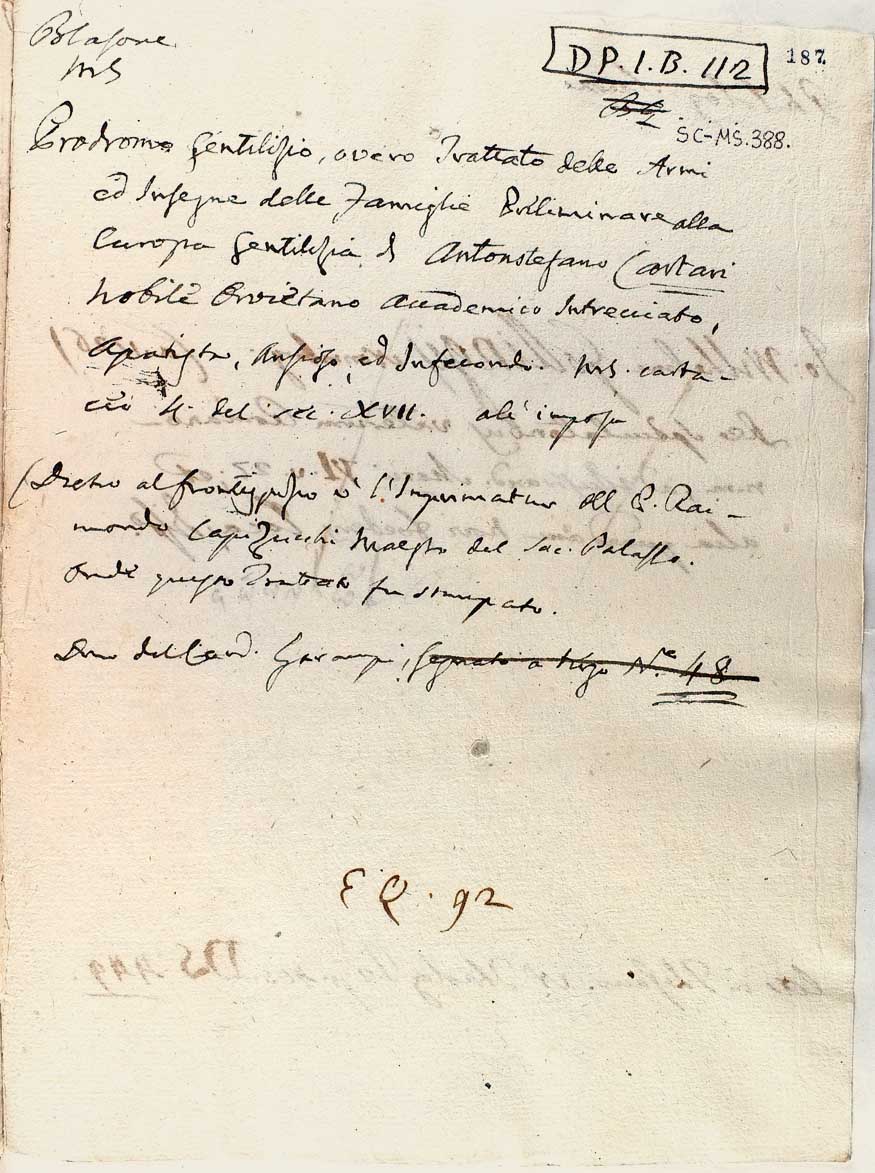 Blasone
MS
DP.I.B.112
187.
SC-MS.388.
Prodromo Gentilizio, overo Trattato delle Armi
ed Insegne delle Famiglie Preliminare alla
Europa Gentilizia di Antonstefano Cartari
Nobile Orvietano Accademico Intrecciato,
Apatista, Ansioso, ed Infecondo. MS. carta-
ceo 4. del sec. XVII.
(Dietro al frontispizio v'è l'Imprimatur del P. Rai-
mondo Capizucchi Maestro del Sac. Palazzo.
onde questo Trattato fu stampato.
Dono del Card. Garampi, segnato a tergo N.º 48
E Q. 92